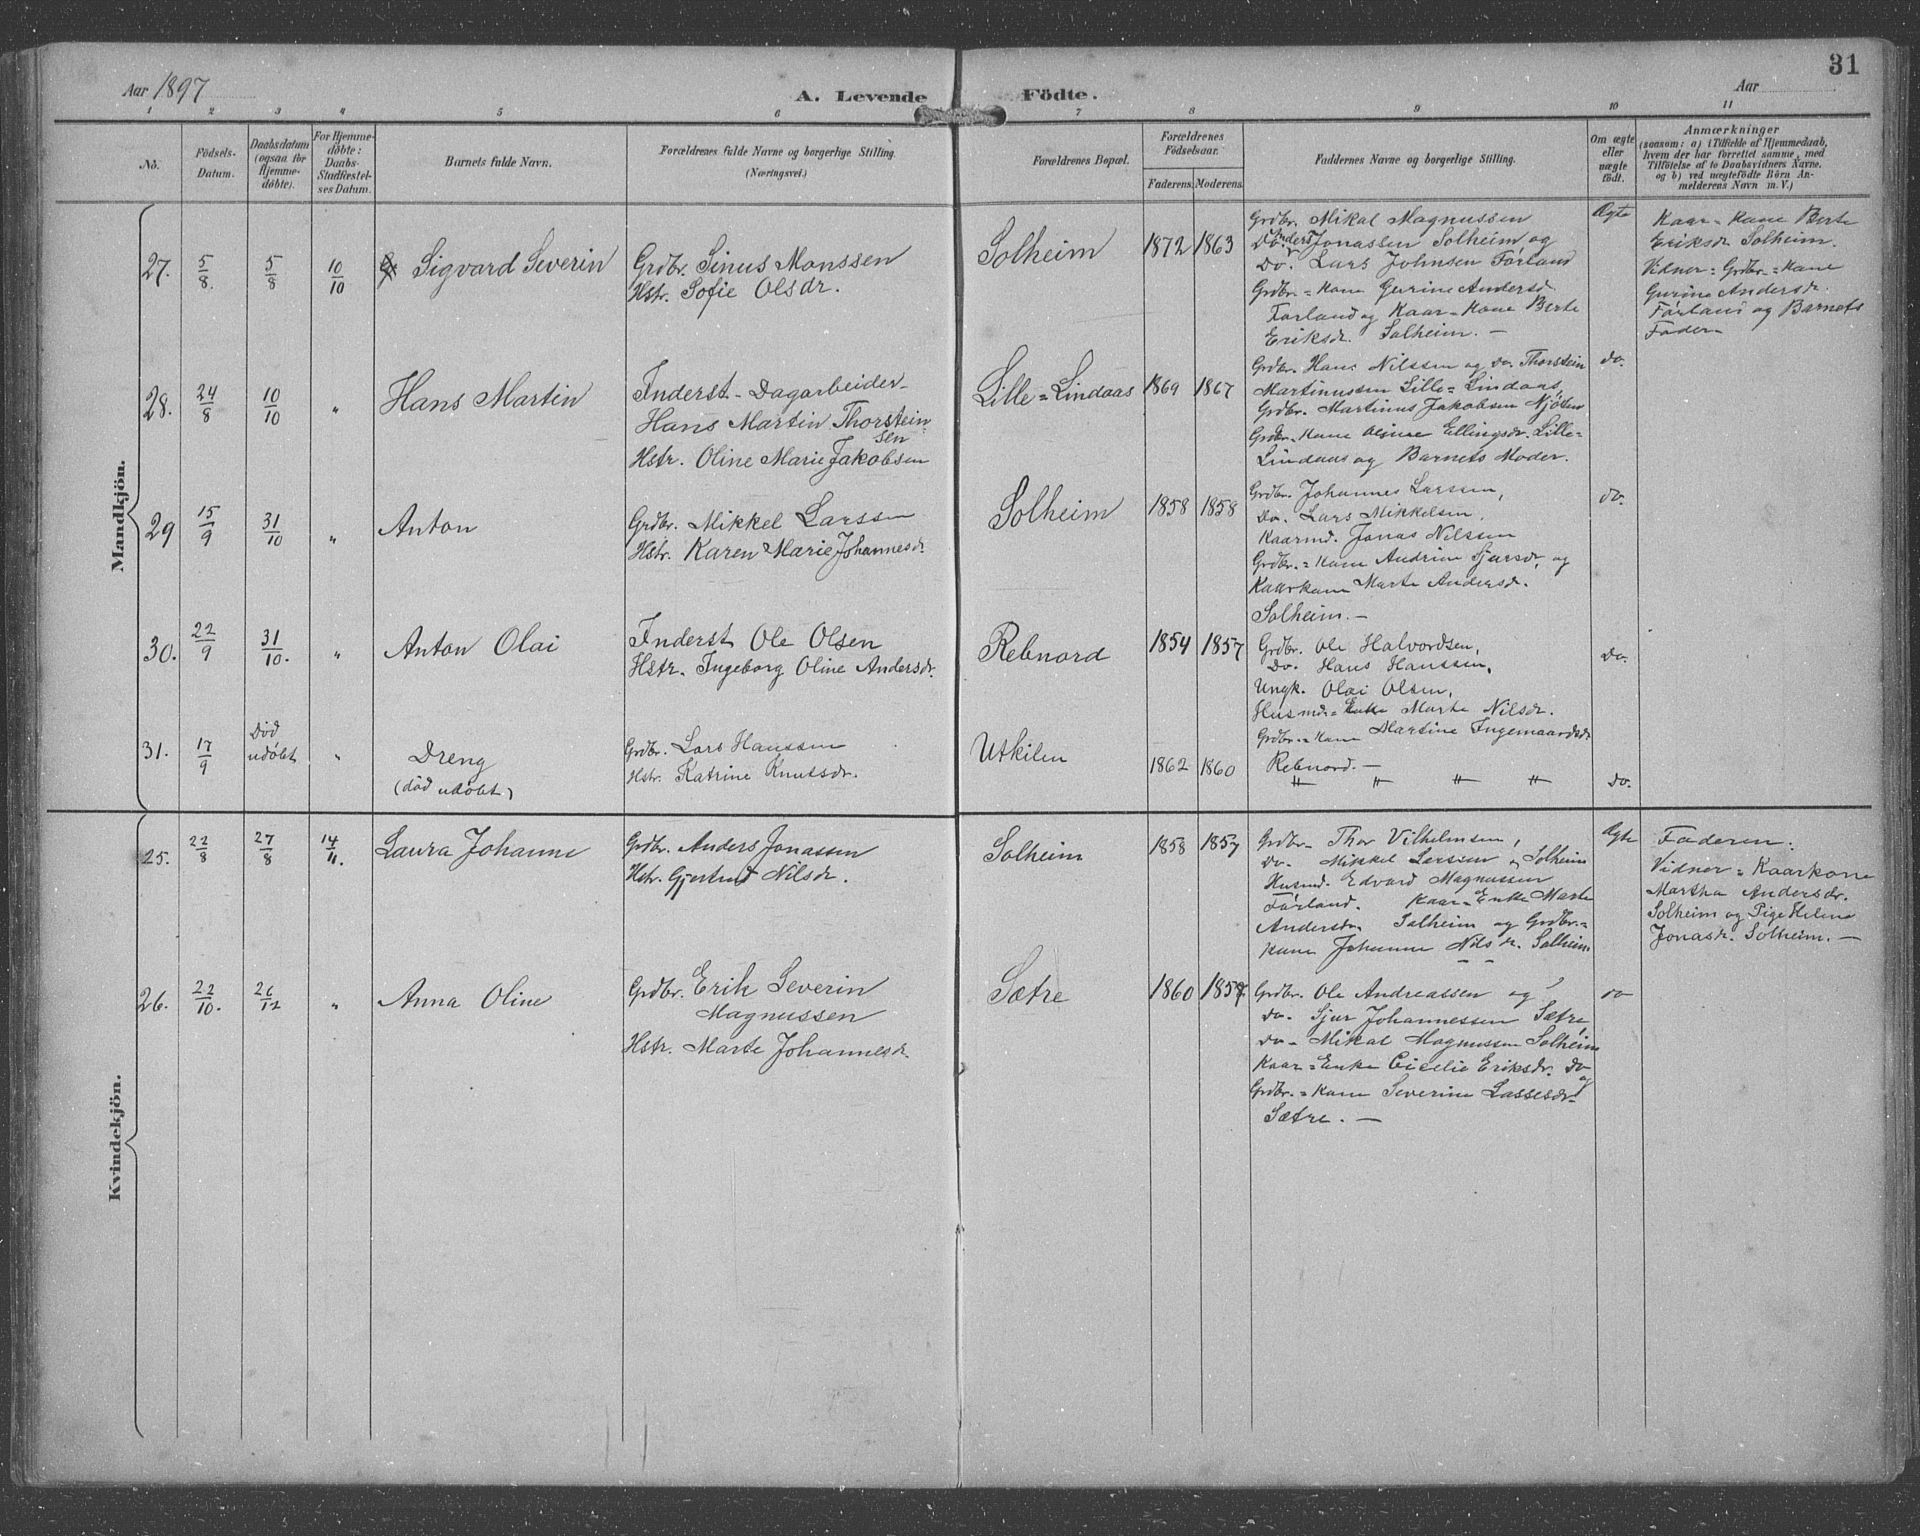 31
Aar 1897
A. Levende Födte.
Aar
1 2 3 4 5 6 7 8 9 10 11
No.
Födsels-
Datum.
Daabsdatum
(ogsaa for
Hjemme-
döbte).
For Hjemme-
döbte:
Daabs-
Stadfæstel-
ses Datum.
Barnets fulde Navn.
Forældrenes fulde Navne og borgerlige Stilling.
(Næringsvei.)
Forældrenes Bopæl.
Forældrenes
Födselsaar.
Faderens. Moderens.
Faddernes Navne og borgerlige Stilling.
Om ægte
eller
uægte
födt.
Anmærkninger
(saasom: a) i Tilfælde af Hjemmedaab,
hvem der har forrettet samme, med
Tilföielse af to Daabsvidners Navne.
og b) ved uægtefödte Börn An-
melderens Navn m. V.)
Mandkjön.
27. 5/8. 5/8 10/10 Sigvard Severin
Grdbr. Sinus Monssen
Hstr. Sofie Olsdr.
Solheim 1872 1863
Grdbr. Mikal Magnussen
Do. Anders Jonassen Solheim og
Do. Lars Johnsen Förland
Grdbr.=Kone Gurine Andersd.
Forland og Kaar=Kone Berte
Eriksdr. Solheim. —
Ægte
Kaar=Kone Berte
Eriksdr Solheim.
Vidner: Grdbr.=Kone
Gurine Andersdr.
Förland og Barnets
Fader-
28. 24/8 10/10 " Hans Martin
Inderst - Dagarbeider-
Hans Martin Thorstein-
sen
Hstr. Oline Marie Jakobsen
Lille=Lindaas 1869 1867
Grdbr. Hans Nilssen og Do. Thorstein
Martinussen Lille=Lindaas,
Grdbr. Martinus Jakobsen Njöten
Grdbr=Kone Ellingsdr. Lille=
Lindaas og Barnets Moder.
do.
29 15/9 31/10 " Anton
Grdbr. Mikkel Larssen
Hstr. Karen Marie Johannesdr.
Solheim 1858 1858
Grdbr. Johannes Larssen,
Do. Lars Mikkelsen,
Kaarmd. Jonas Nilssen
Grdbr.=Kone Andrine Sjursdr, og
Kaarkone Marte Andersdr.
Solheim. —
do.
30. 22/9 31/10. " Anton Olai
Inderst Ole Olsen
Hstr. Ingeborg Oline Andersdr.
Rebnord 1854 1857
Grdbr. Ole Halvordsen,
Do. Hans Hanssen,
Ungk. Olai Olsen,
Husmds=Enke Marte Nilsdr.
Grdbr.=Kone Martine Ingemaardsdr
Rebnord. —
Do.
31. 17/9 Död udöbt " Dreng
(död udöbt)
Grdbr. Lars Hanssen
Hstr. Katrine Knutsdr.
Utkilen 1862 1860
" " " " do.
Kvindekjön.
25. 22/8 27/8 14/11. Laura Johanne
Grdbr. Anders Jonassen
Hstr. Gjertrud Nilsdr.
Solheim 1858 1857
Grdbr- Thor Vilhelmsen,
Do- Mikkel Larssen Solheim
Husmd. Edvard Magnussen
Förland. Kaar=Enke Marte
Andersdr. Solheim og Grdbr.=
kone Johanne Nilsdr. Solheim.
Ægte
Faderen.
Vidner=Kaarkone
Martha Andersdr.
Solheim og Pige Helene
Jonasdr. Solheim. —
26. 22/10. 26/12 " Anna Oline
Grdbr. Erik Severin
Magnussen
Hstr. Marte Johannesdr.
Sætre 1860 1857.
Grdbr. Ole Andreassen og
do. Sjur Johannessen Sætre,
do- Mikal Magnussen Solheim
Kaar=Enke Cicelie Eriksdr. Do og
Grdbr.=Kone Severine Lassesdr-
Sætre. —
do